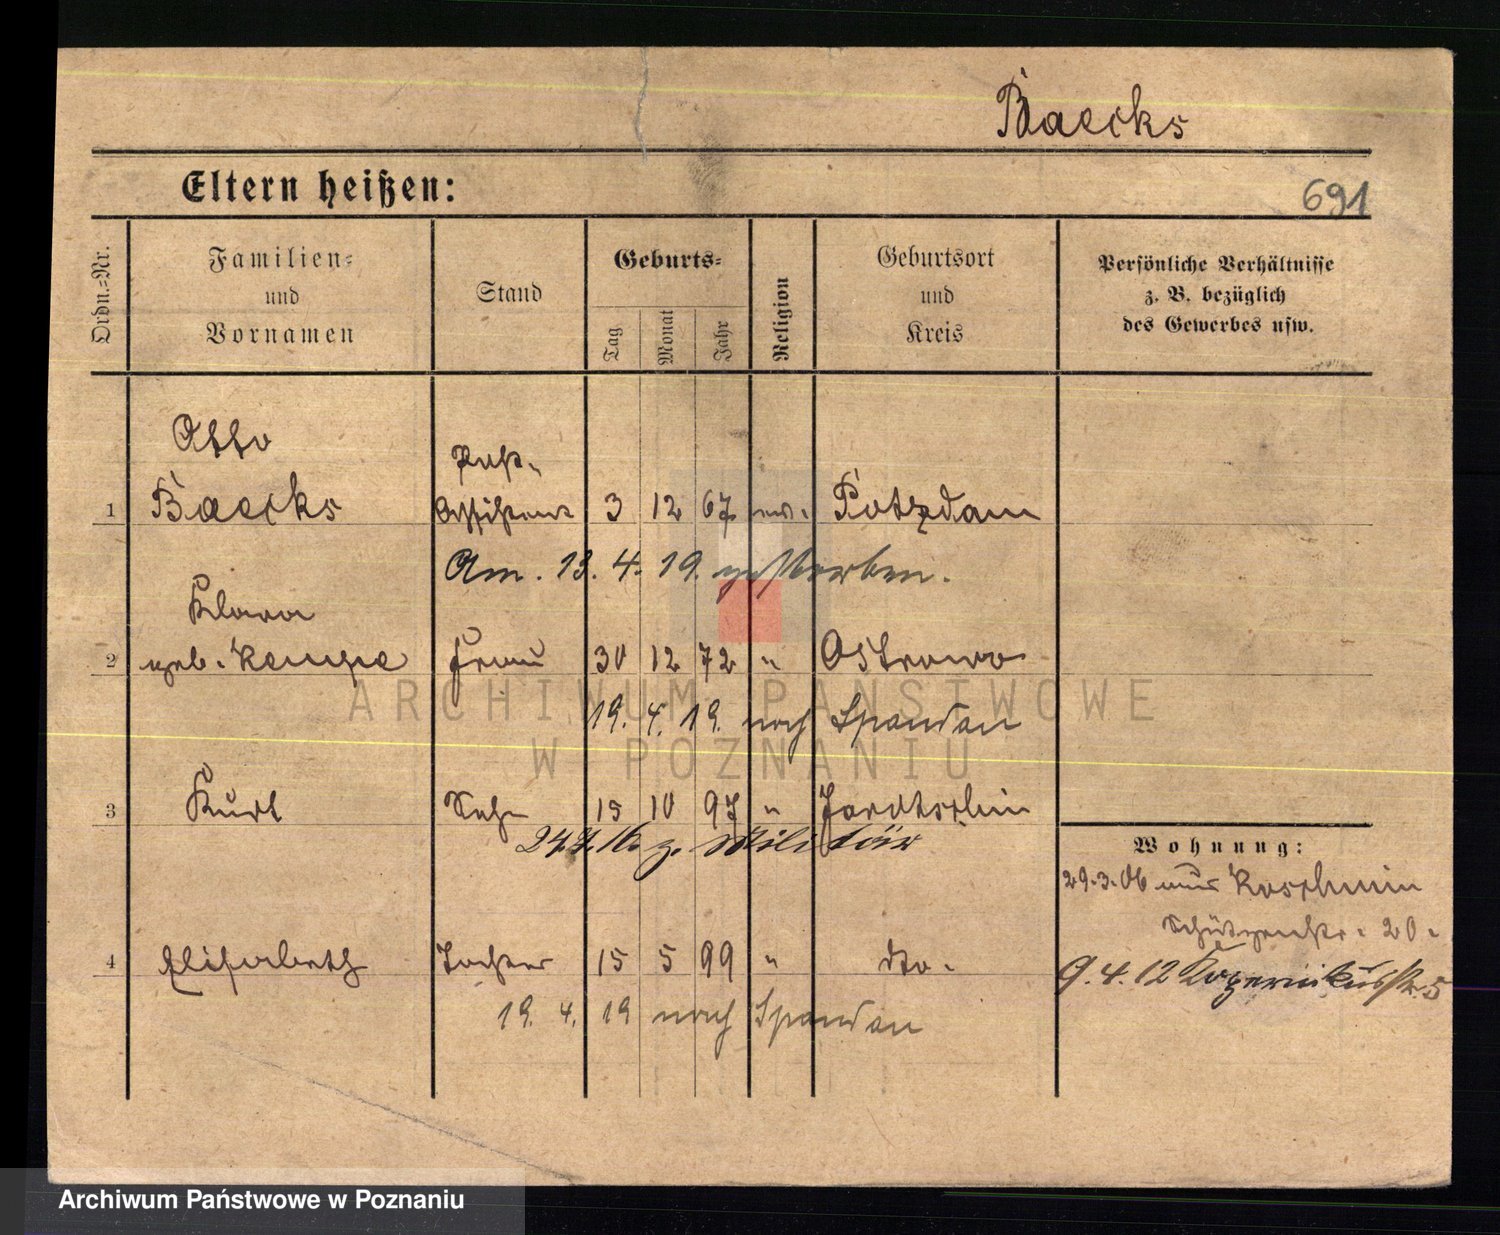 Baecks
Eltern heißen:
691
Ordn.-Nr.
Familien-
und
Vornamen
Stand
Geburts-
Tag
Monat
Jahr
Religion
Geburtsort
und
Kreis
Persönliche Verhältnisse
z. B. bezüglich
des Gewerbes usw.
Otto
Post-
1 Baecks Assistent 3 12 67 ev. Potsdam
Am. 13. 4. 19. gestorben.
Klara
2 geb. Kempe Frau 30 12 72 " Ostrowo
19. 4. 19. nach Spandau
3 Kurt Sohn 15 10 97 " Jarotschin
z. Militär
Wohnung:
29.3.06 aus Koschmin
Schützenstr. 20.
4 Elisabeth Tochter 15 5 99 " do.
9. 4. 12 Kopernikusstr. 5
19. 4. 19 nach Spandau
ARCHIWUM PAŃSTWOWE
W POZNANIU
Archiwum Państwowe w Poznaniu